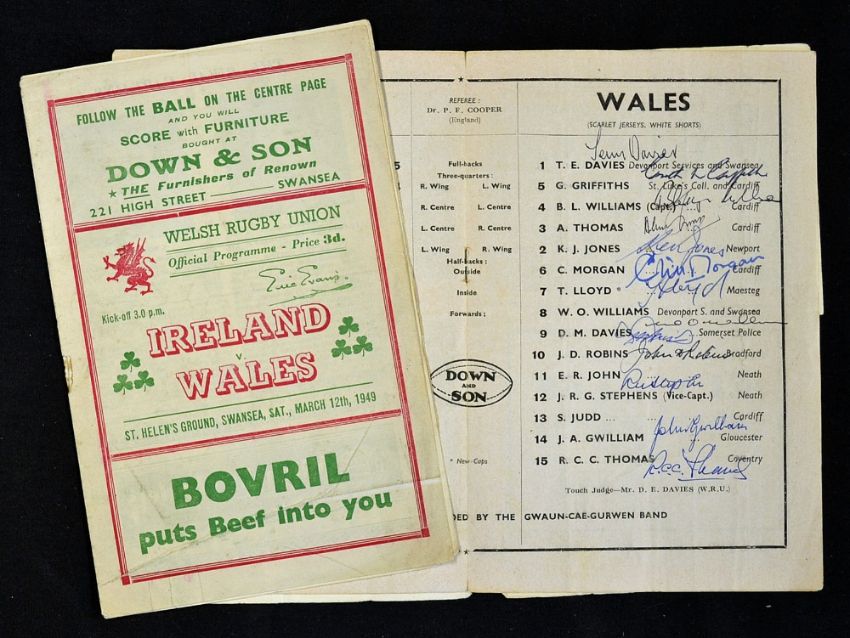 FOLLOW THE BALL ON THE CENTRE PAGE
AND YOU WILL
SCORE with FURNITURE
BOUGHT AT
DOWN & SON
★ THE Furnishers of Renown
221 HIGH STREET SWANSEA
WELSH RUGBY UNION
Official Programme - Price 3d.
Eric Evans
Kick-off 3.0 p.m.
IRELAND
v.
WALES
ST. HELEN'S GROUND, SWANSEA, SAT., MARCH 12th, 1949
BOVRIL
puts Beef into you
REFEREE:
Dr. P. F. COOPER
(England)
Full-backs
Three-quarters:
R. Wing L. Wing
R. Centre L. Centre
L. Centre R. Centre
L. Wing R. Wing
Half-backs:
Outside
Inside
Forwards:
DOWN
AND
SON
* New-Caps
WALES
(SCARLET JERSEYS, WHITE SHORTS)
Terry Davies
1 T. E. DAVIES Devonport Services and Swansea
5 G. GRIFFITHS St. Luke's Coll. and Cardiff
4 B. L. WILLIAMS (Capt.) Cardiff
3 A. THOMAS Cardiff
2 K. J. JONES Ken Jones Newport
6 C. MORGAN Cliff Morgan Cardiff
7 T. LLOYD Lloyd Maesteg
8 W. O. WILLIAMS Devonport S. and Swansea
9 D. M. DAVIES Somerset Police
10 J. D. ROBINS John D Robins Bradford
11 E. R. JOHN Neath
12 J. R. G. STEPHENS (Vice-Capt.) Neath
13 S. JUDD Cardiff
14 J. A. GWILLIAM John Gwilliam Gloucester
15 R. C. C. THOMAS R.C.C. Thomas Coventry
Touch Judge—Mr. D. E. DAVIES (W.R.U.)
DED BY THE GWAUN-CAE-GURWEN BAND